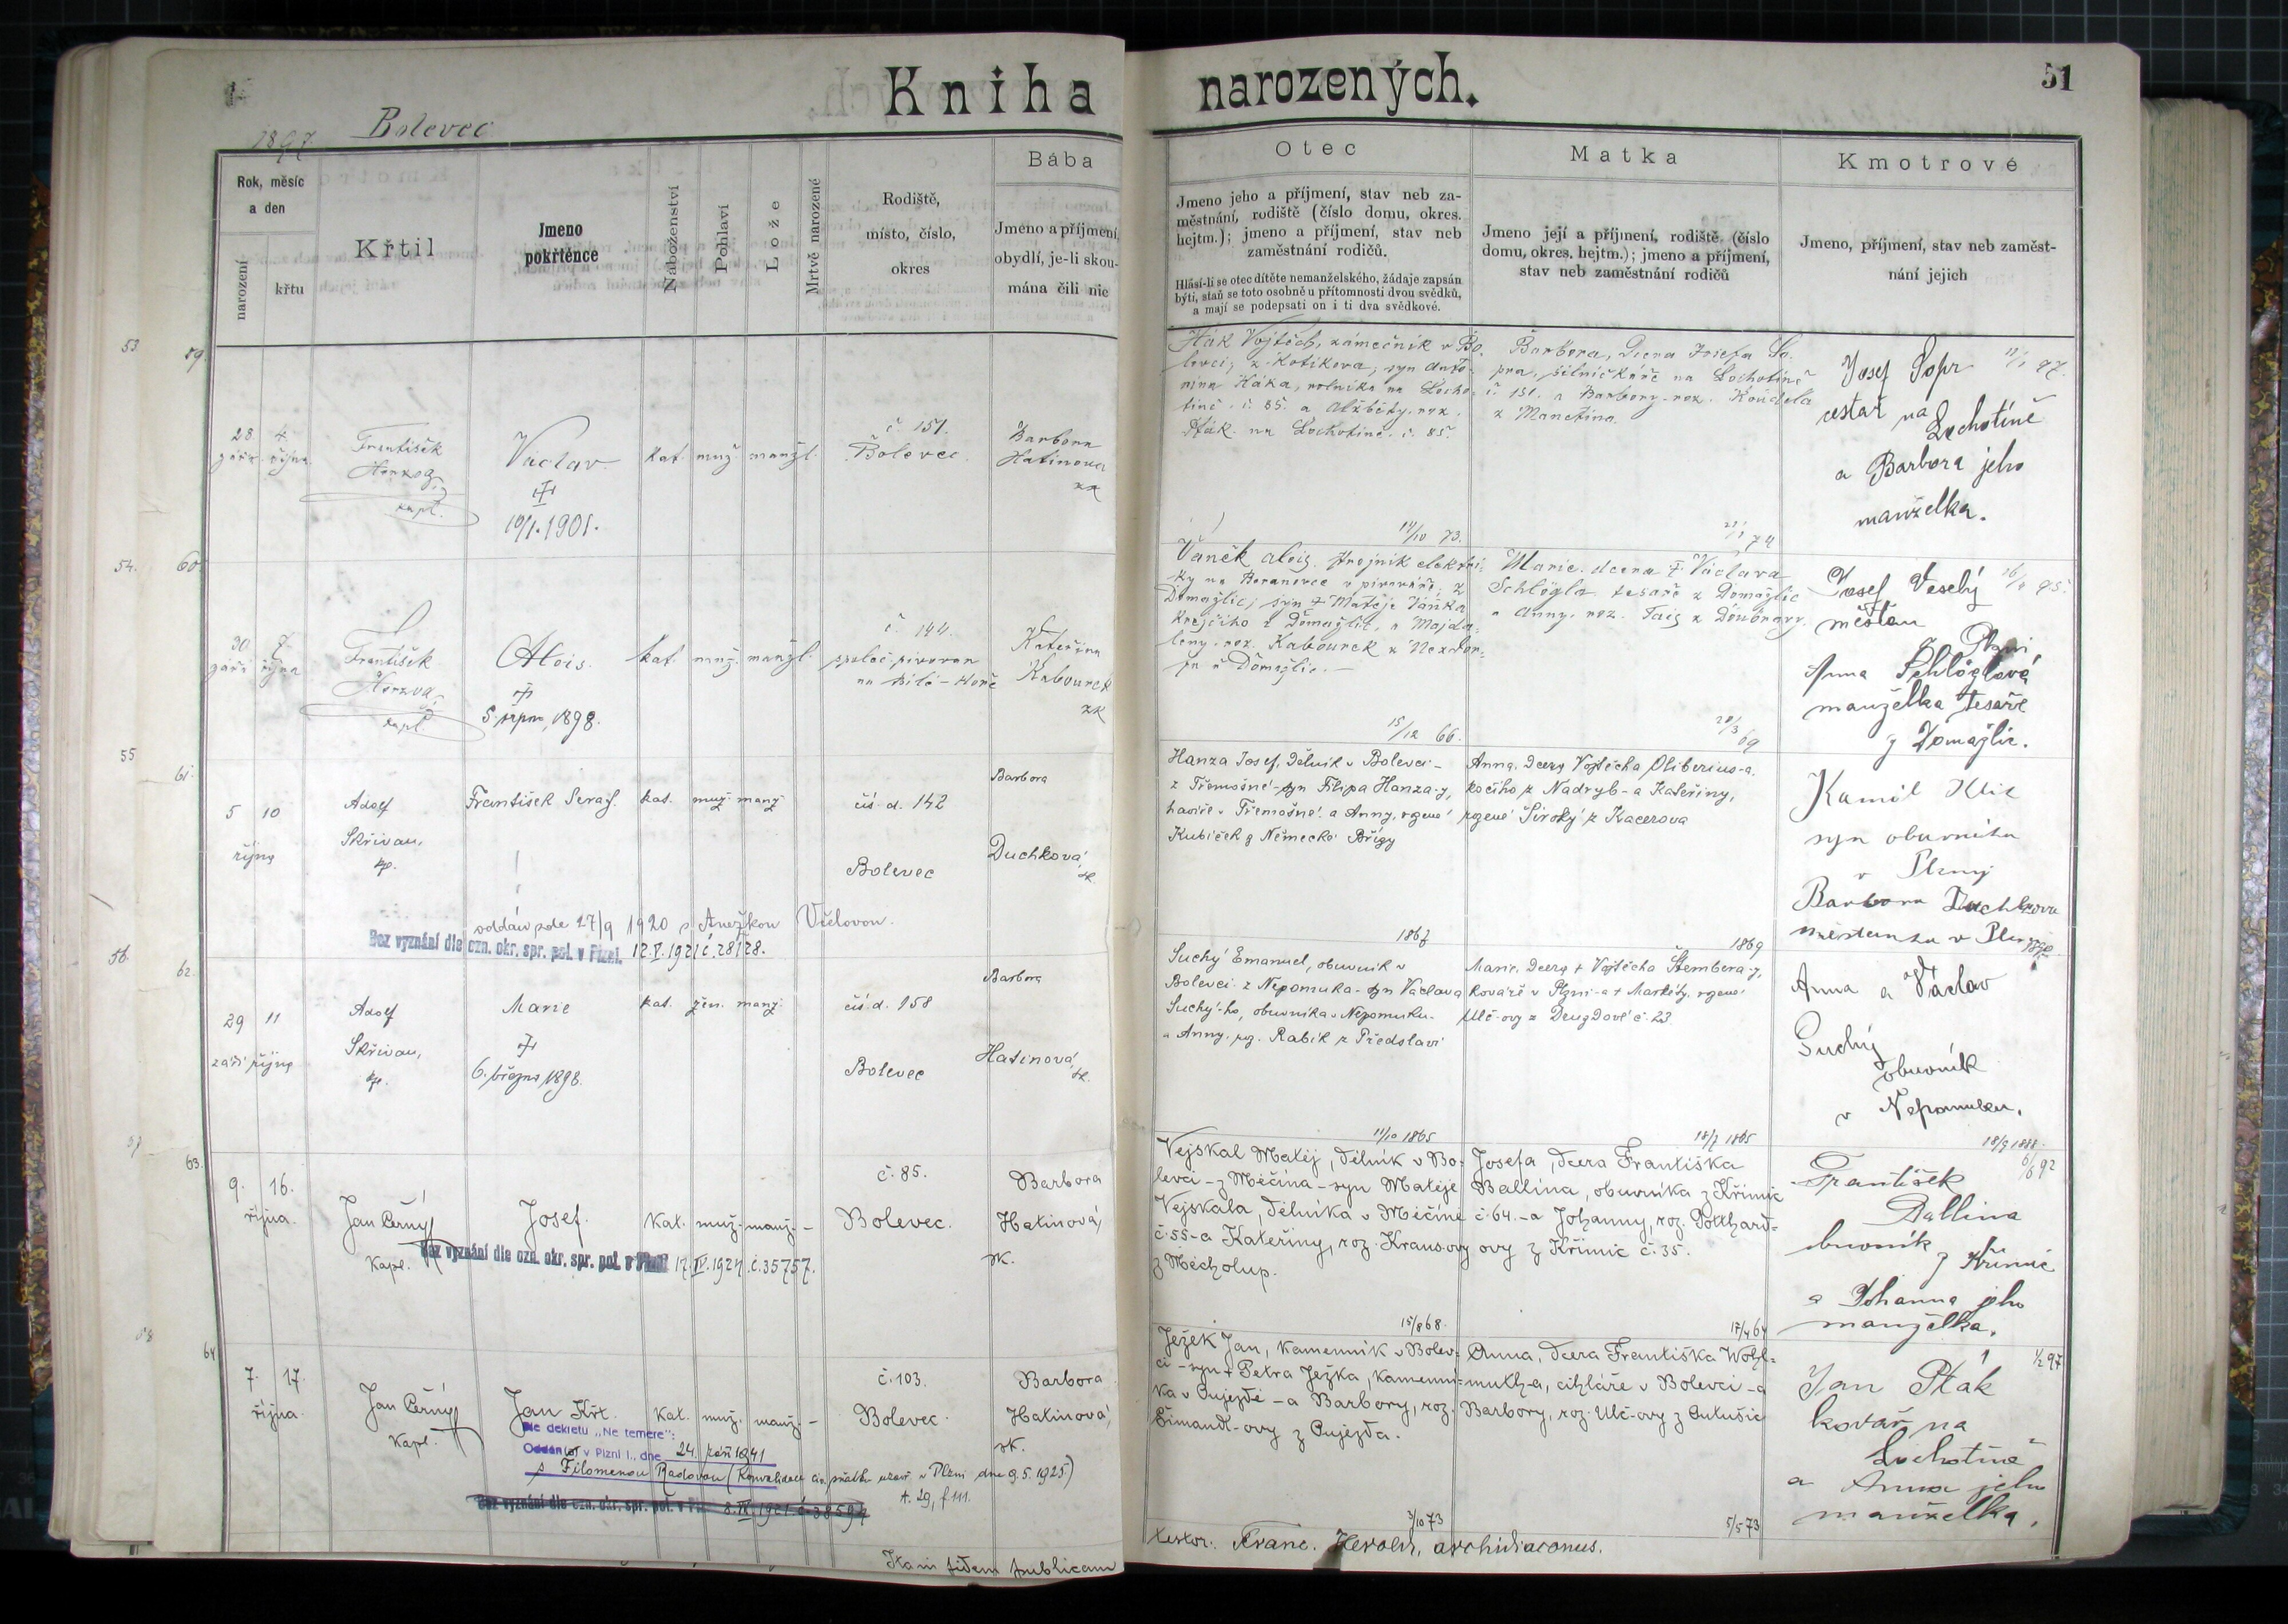 Kniha narozených.
51
1897 Bolevec
Rok, měsíc a den
narození
křtu
Křtil
Jmeno pokřtěnce
Náboženství
Pohlaví
Lože
Mrtvě narozené
Rodiště, místo, číslo, okres
Bába
Jmeno a příjmení, obydlí, je-li skoumána čili nic
Otec
Jmeno jeho a příjmení, stav neb za-
městnání, rodiště (číslo domu, okres.
hejtm.); jmeno a příjmení, stav neb
zaměstnání rodičů.
Hlásí-li se otec dítěte nemanželského, žádaje zapsán
býti, staň se toto osobně u přítomnosti dvou svědků,
a mají se podepsati on i ti dva svědkové.
Matka
Jmeno její a příjmení, rodiště (číslo
domu, okres. hejtm.); jmeno a příjmení,
stav neb zaměstnání rodičů
Kmotrové
Jmeno, příjmení, stav neb zaměst-
nání jejich
53
59.
28. září
4. října
František
kapl.
Václav
10/1. 1901.
kat. muž manžl.
č. 151.
Bolevec
Barbora
Hatinova
zk
Hák Vojtěch, zámečník v Bo-
levci, z Kotíkova, syn Anto-
nína Háka, rolníka na Locho-
tíně č. 85. a Alžběty roz.
Pták na Lochotíně č. 85.
14/10 73.
Barbora, dcera Josefa Šo-
pra, silničkáře na Lochotíně
č. 151. a Barbory roz. Koudela
z Manetína.
Josef Šopr
cestář na
Lochotíně
a Barbora jeho
manželka.
54.
60.
30 září
7 října
František
kapl.
Alois.
5 srpna, 1898.
kat. muž. manžl.
č. 144.
společ. pivovar
na Bílé-Hoře
Kateřina
Kabourek
zk
Vaněk Alois, strojník elektri-
ky na v pivováře, z
Domažlic; syn † Matěje Vaňka
krejčího z Domažlic, a Majda-
leny roz. Kabourek z
Domažlic. —
15/12 66.
Marie, dcera † Václava
Schlögla tesaře z Domažlic
a Anny, roz. z
28/3 69
Josef Veselý
měšťan
z Plzni,
Anna Schlöglová
manželka tesaře
z Domažlic.
55
61.
5 10
října
Adolf
Skřivan,
kp.
František Seraf.
kat. muž. manž
čís. d. 142
Bolevec
Barbora
Duchková,
zk.
oddán zde 27/9 1920 s Anežkou Včelovou.
Bez vyznání dle ozn. okr. spr. pol. v Plzni. 12.V.1921 č. 28128.
Hanza Josef, dělník v Bolevci –
z Třemošné – syn Filipa Hanza-y,
havíře v Třemošné a Anny, rozené
Kubíček z Německé Břízy
1867
Anna, dcera Vojtěcha Oliberius-a,
kočího z Nadryb – a Kateřiny,
rozené Široký z Kacerova
1869
Kamil
syn obuvníka
v Plzni
Barbora Duchkova
měšťanka v Plzni
56
62.
29 11
září října
Adolf
Skřivan,
kp.
Marie
6. března 1898.
kat. žen. manž
čís. d. 158
Bolevec
Barbora
Hatinová,
zk.
Suchý Emanuel, obuvník v
Bolevci z Nepomuka – syn Václava
Suchý-ho, obuvníka v Nepomuku –
a Anny, roz. Rabík z Předslavi
11/10 1865
Marie, dcera † Vojtěcha Štembera-y,
kováře v Plzni – a † Markéty, rozené
Ulč-ovy z č. 23
18/7 1865
Anna a Václav
Suchý
obuvník
v Nepomuku.
63.
9. 16.
října.
Jan Černý,
kapl.
Josef.
kat. muž. manž. –
č. 85.
Bolevec.
Barbora
Hatinová,
zk.
Bez vyznání dle ozn. okr. spr. pol. v Plzni 17.IV.1924 č. 35757.
Vejskal Matěj, dělník v Bo-
levci – z Měčína – syn Matěje
Vejskala, dělníka v Měčíně
č. 55 – a Kateřiny, roz. Kraus-ovy
z Měcholup.
15/8 68.
Josefa, dcera Františka
Ballina, obuvníka z Křimic
č. 64. – a Johanny, roz. Potthard-
ovy z Křimic č. 35.
17/4 64
18/9 1888.
František
Ballina
obuvník
z Křimic
a Johanna jeho
manželka.
64
7. 17.
října.
Jan Černý,
kapl.
Jan Křt.
kat. muž. manž. –
č. 103.
Bolevec.
Barbora
Hatinová,
zk.
Dle dekretu „Ne temere":
Oddán(a) v Plzni I., dne 24. září 1941
s Filomenou Radovou (Konvalidace civ. sňatku uzavř. v Plzni dne 9.5.1925)
t. 29, f 111.
Bez vyznání dle ozn. okr. spr. pol. v
Ježek Jan, kamenník v Bolev-
ci – syn † Petra Ježka, kamenní-
ka v Oujezdě – a Barbory, roz.
Šimandl-ovy z Oujezda.
3/10 73
Anna, dcera Františka Wohl-
muth-a, cihláře v Bolevci – a
Barbory, roz. Ulč-ovy z
5/5 73
1/2 97
Jan Pták
kovář na
Lochotíně
a Anna jeho
manželka.
fidem publicam
testor: Franc. Herold, archidiaconus.